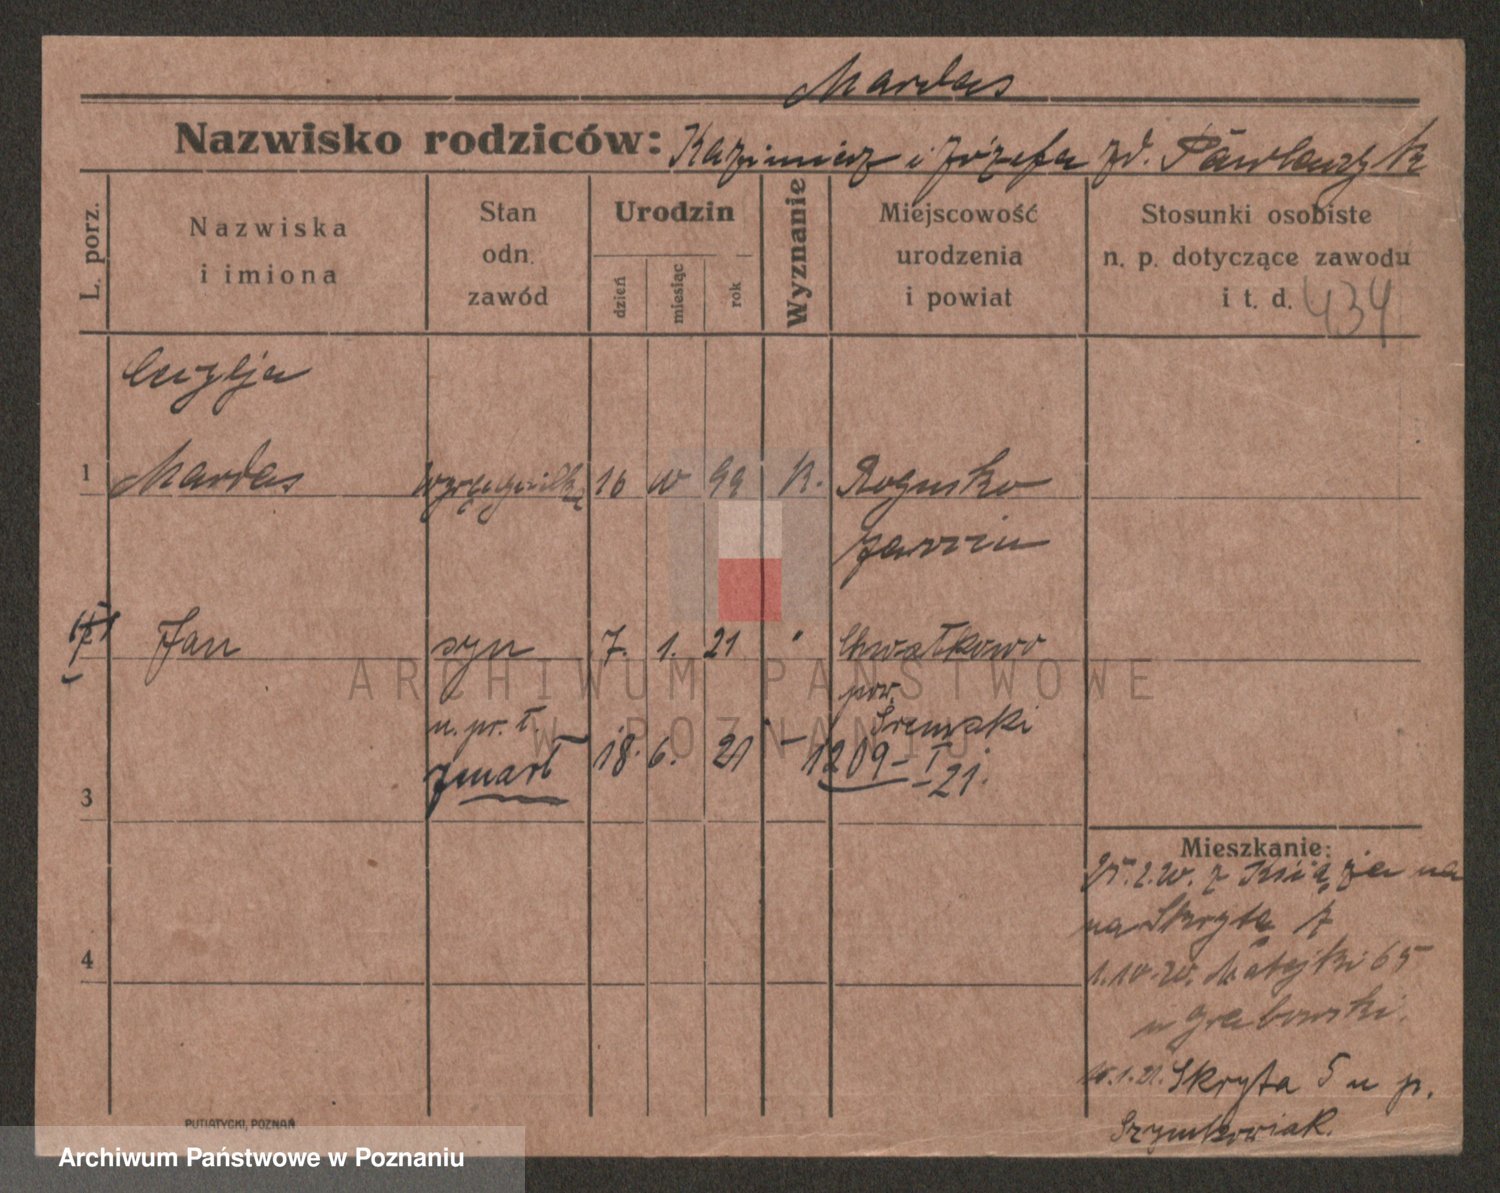 Mardas
Nazwisko rodziców: Kazimierz i Józefa zd. Pawlaczyk
L. porz.
Nazwiska
i imiona
Stan
odn.
zawód
Urodzin
dzień
miesiąc
rok
Wyznanie
Miejscowość
urodzenia
i powiat
Stosunki osobiste
n. p. dotyczące zawodu
i t. d. 434
Cecylja
1 Mardas 16 10 99 K. Rogusko
Jarocin
Jan syn 7. 1. 21 " Chwałkowo
pow.
n. pr. Śremski
zmarł 18. 6. 21 – 1209 – I
3 – 21.
Mieszkanie:
25.2.20. z Książa na
na Skryta
4 1.10.20. Matejki 65
u Grabowski.
15.1.21. Skryta 5 u p.
Szymkowiak.
PUTIATYCKI, POZNAŃ
ARCHIWUM PAŃSTWOWE
W POZNANIU
Archiwum Państwowe w Poznaniu